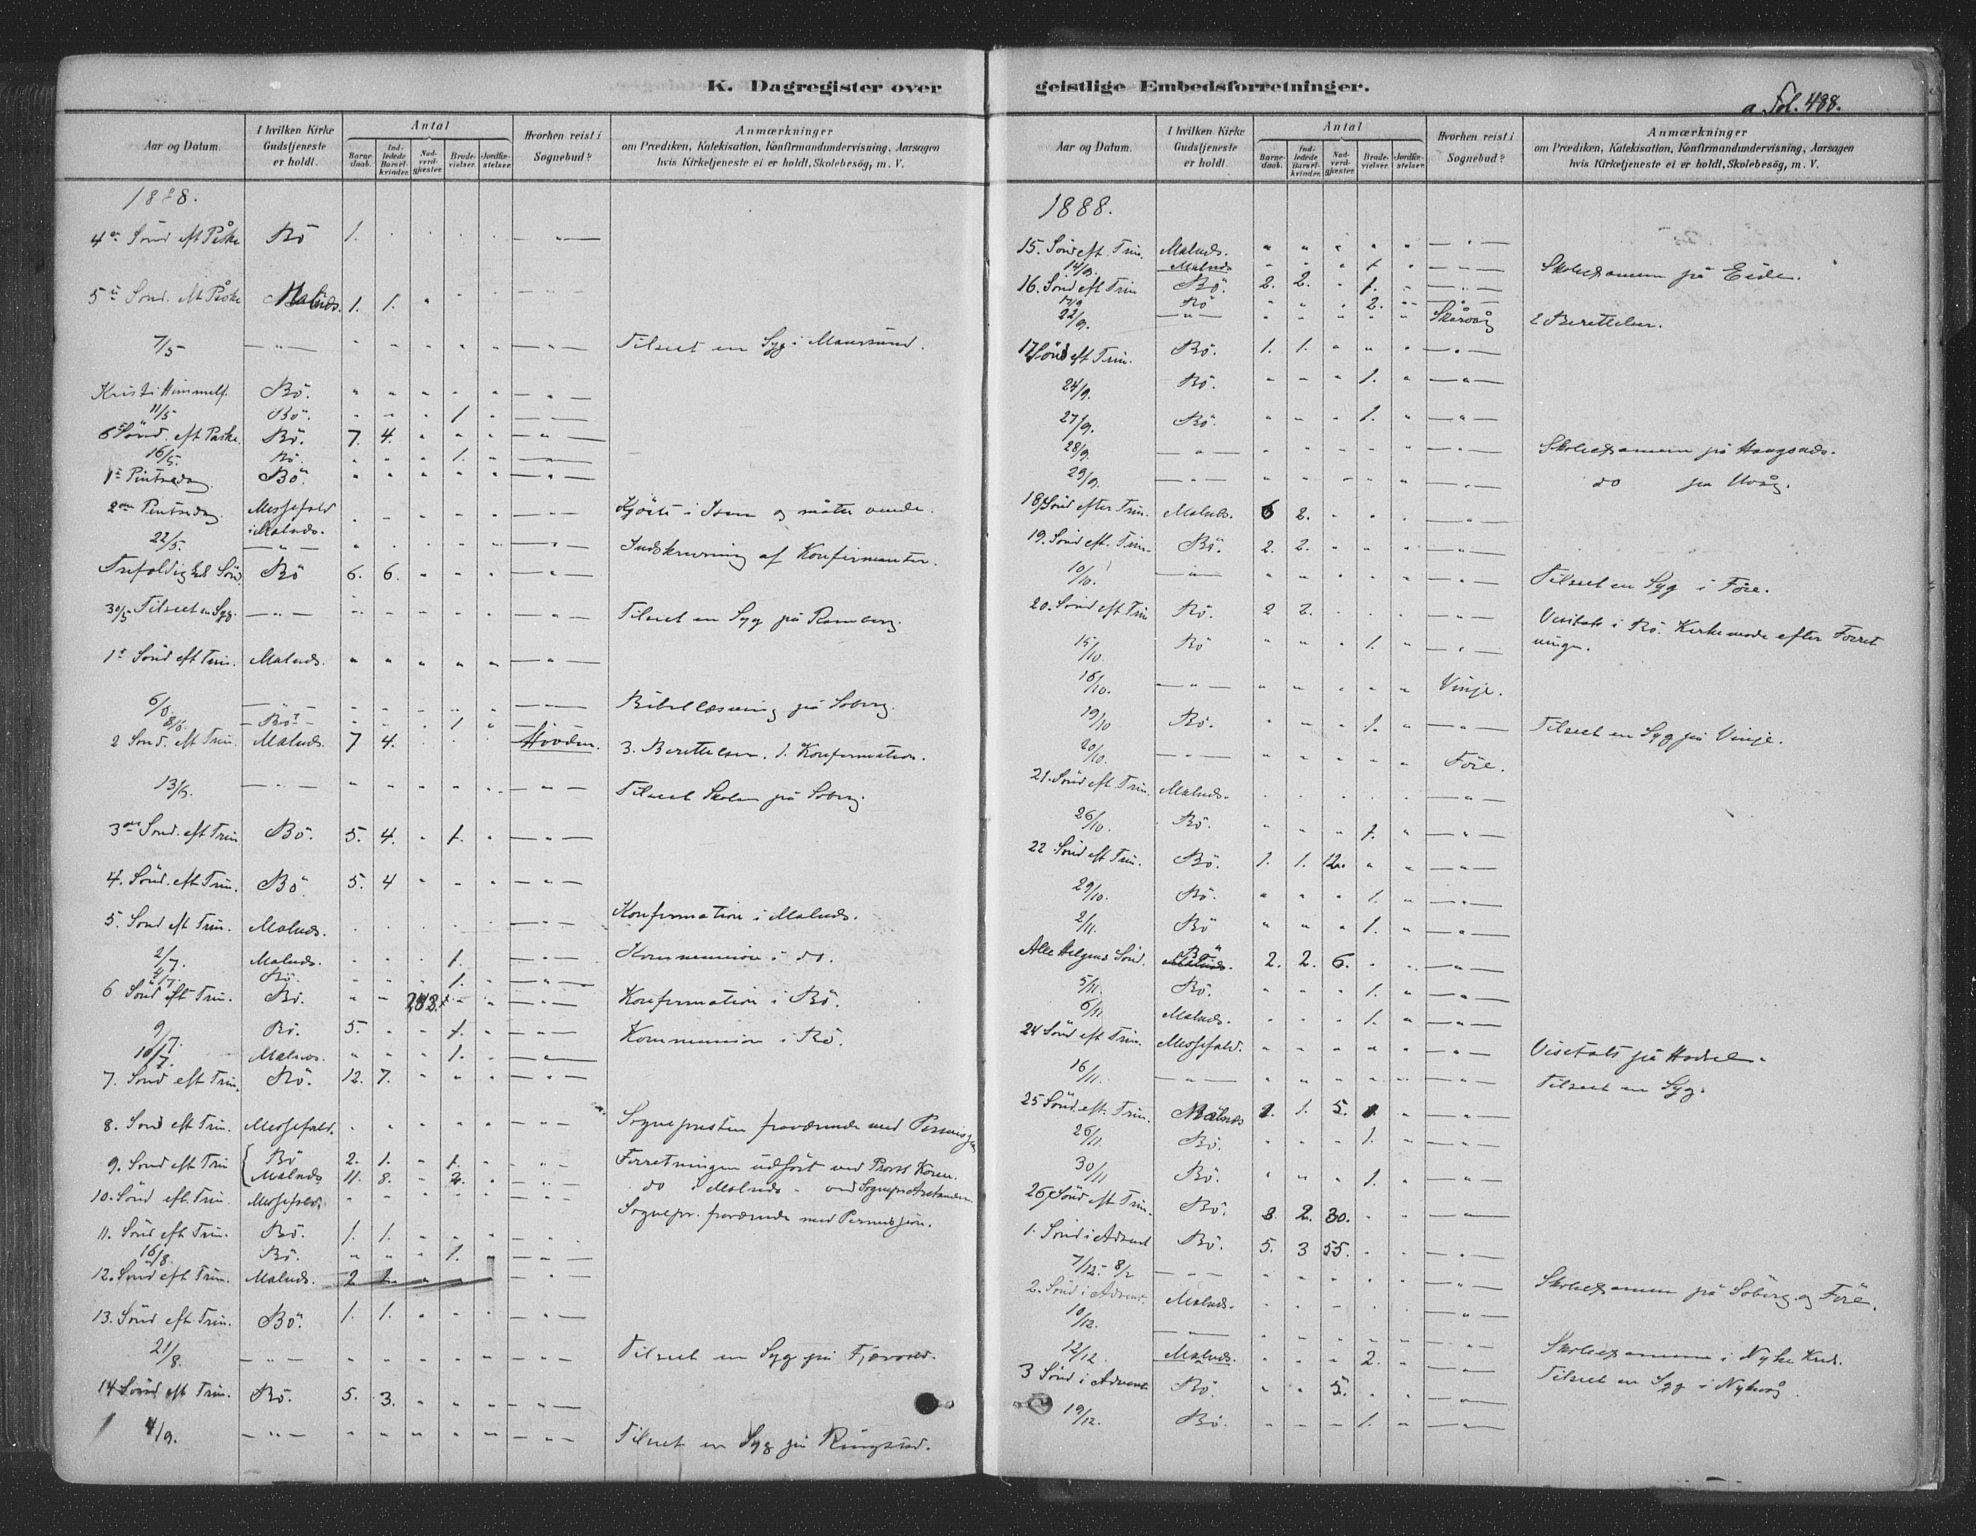 K. Dagregister over
Aar og Datum. I hvilken Kirke Gudstjeneste er holdt. Antal Barnedaab. Indledede Barselkvinder. Nadverdgjæster. Brudevielser. Jordfæstelser. Hvorhen reist i Sognebud? Anmærkninger om Prædiken, Katekisation, Konfirmandundervisning, Aarsagen hvis Kirketjeneste ei er holdt, Skolebesög, m. V.
1888.
4de Sönd eft Påske Bö 1. . . . . — " —
5te Sönd. eft Påske Malnæs. 1. 1. " — " —
7/5 — " — — " — Tilseet en Syg i Maursund.
Kristi Himmelf. Bö. " " " " " — " —
11/5 Bö. " " " 1. " — " —
6 Sönd. eft Paske. Bö. 7. 4. " " " — " —
16/5. Bö. " " " 1. " — " —
1ste Pintsedag. Bö
2den Pintsedag. Messefald i Malnæs. — " —
22/5. — " — — " — Indskrivning af Konfirmanter.
Trefoldigheds Sönd. Bö 6. 6. " " " — " —
30/5 Tilseet en Syg. — " — — " — Tilseet en Syg på Ramberg.
1st Sönd eft Trin. Malnæs. " " " " " — " —
6/6. — " — — " — Bibellæsning på Söberg.
8/6 — Bö — " " " 1. " — " —
2 Sönd. eft Trin. Malnæs. 7 4. . . . Hovden. 3. Berettelser. 1. Konfirmation.
13/6. — " — — " — Tilseet Skolen på Söberg.
3die Sönd. eft Trin Bö. 5. 4. " 1. " — " —
4. Sönd. eft Trin. Bö. 5. 4 " " " — " —
5. Sönd eft Trin. Malnæs. . . . . . — " — Konfirmation i Malnæs.
2/7. Malnæs. . . . 1. . — " — Kommunion i do.
4/7. Bö. . . . 1. — " —
6 Sönd eft Trin. Bö. " " 243. — " — Konfirmation i Bö.
9/7. Bö. 5. . . 1. . — " — Kommunion i Bö.
10/7. Malnæs. " " " 1. " — " —
7. Sönd eft Trin. Bö. 12. 7. " " " — " —
8. Sönd eft Trin. Messefald. . . . . . — " — Sognepresten fraværende med Permisjon
9. Sönd eft Trin { Bö 2. 1. " 1. " " Forretningen udfört ved Provst Koren.
Malnæs 11. 8. . 2. . — " — do i Malnæs - ved Sognepr.
10. Sönd eft. Trin. Messefald.
11. Sönd eft Trin. Bö. 1. 1. " " . — " — Sognepr. fraværende med Permisjon.
16/8 Bö. " " " 1. — " —
12. Sönd eft Trin. Malnæs. 2 2. " " — " —
13. Sönd eft Trin. Bö. 1. 1. . " . — " —
21/8. — " — " " " " " — " — Tilseet en Syg på
14 Sönd eft Trin. Bö. 5. 3. " " " — " —
4/9. — " — " " " " " — " — Tilseet en Syg på Ringstad.
geistlige Embedsforretninger.
a. Fol. 488.
Aar og Datum. I hvilken Kirke Gudstjeneste er holdt. Antal Barnedaab. Indledede Barselkvinder. Nadverdgjæster. Brudevielser. Jordfæstelser. Hvorhen reist i Sognebud? Anmærkninger om Prædiken, Katekisation, Konfirmandundervisning, Aarsagen hvis Kirketjeneste ei er holdt, Skolebesög, m. V.
1888.
15. Sönd eft. Trin. Malnæs. " " " " " — " —
14/9. Malnæs " " " 1. " — " — Skoleexamen på Eide.
16. Sönd eft Trin Bö. 2. 2. " 1. " — " —
17/9 Bö " " " 2. " — " —
22/9. — " — " " " " " Skårvåg 2 Berettelser.
17 Sönd eft Trin. Bö. 1. 1. " " " — " —
24/9. Bö. " " " 1. " — " —
27/9. Bö. " " " 1. " — " —
28/9. — " — . . . . . — " — Skoleexamen på Haugsnæs.
29/9. " " " " " — " — do på
18 Sönd efter Trin. Malnæs. 6 2. " " . — " —
19. Sönd eft. Trin. Bö. 2. 2. " " " — " —
10/10. — " — " " " " " — " — Tilseet en Syg i Före.
20. Sönd eft Trin Bö. 2 2. . . . — " — Visitats i Bö. Kirkemöde efter Forret
15/10. Bö " " " 1. " — " — ningen.
16/10. — " — " " " " " Vinje.
19/10 Bö. " " " 1. " — " — Tilseet en Syg på Vinje.
20/10. — " — " " " " " Före.
21. Sönd eft Trin. Malnæs. . . . . . — " —
26/10. Bö. " " " 1. " — " —
22 Sönd eft Trin. Bö. 1. 1. 12. " " — " —
29/10. Bö. " " " 1. " — " —
2/11. Bö " " " 1. " — " —
Alle Helgens Sönd. Bö Malnæs. 2. 2. 6. . . — " —
5/11. Bö. " " " 1. " — " —
6/11 Malnæs. . . . 1. " — " —
24 Sönd eft Trin. Messefald. " " " " " — " — Visitats på Hadsel.
16/11. — " — " " " " " — " — Tilseet en Syg.
25 Sönd. eft Trin. Malnæs 1. 1. 5. 1. " — " —
26/11. Bö. . . . 1. . — " —
30/11 Bö. " " " 1. " — " —
26 Sönd eft Trin. Bö. 3. 2. 30. . . — " —
1. Sönd i Advent Bö. 5. 3 55. . . — " —
7/12. - 8/12 — " — . . . . . — " — Skoleexamen på Söberg og Före.
2. Sönd i Advent Malnæs. . . . . . — " —
10/12. — " — . . . . . — " — Skoleexamen i Nyke Kreds.
12/12. Malnæs. " " " 2. " — " — Tilseet en Syg i Nykvåg.
3 Sönd i Advent Bö. " " 5. . . — " —
19/12. Bö. — — — 1. — — " —